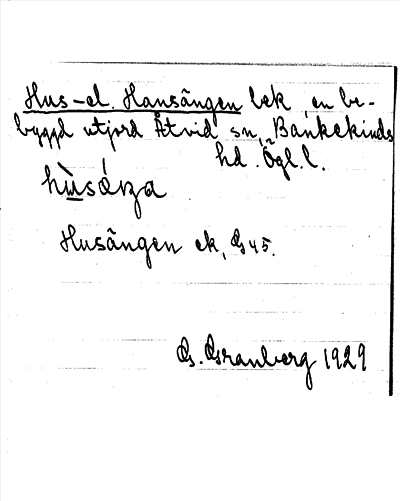 Hus- el. Hansängen bek, en be-
byggd utjord Åtvid sn, Bankekinds
hd. Ögl. l.
Husängen ek, G 45.
G. Granberg 1929